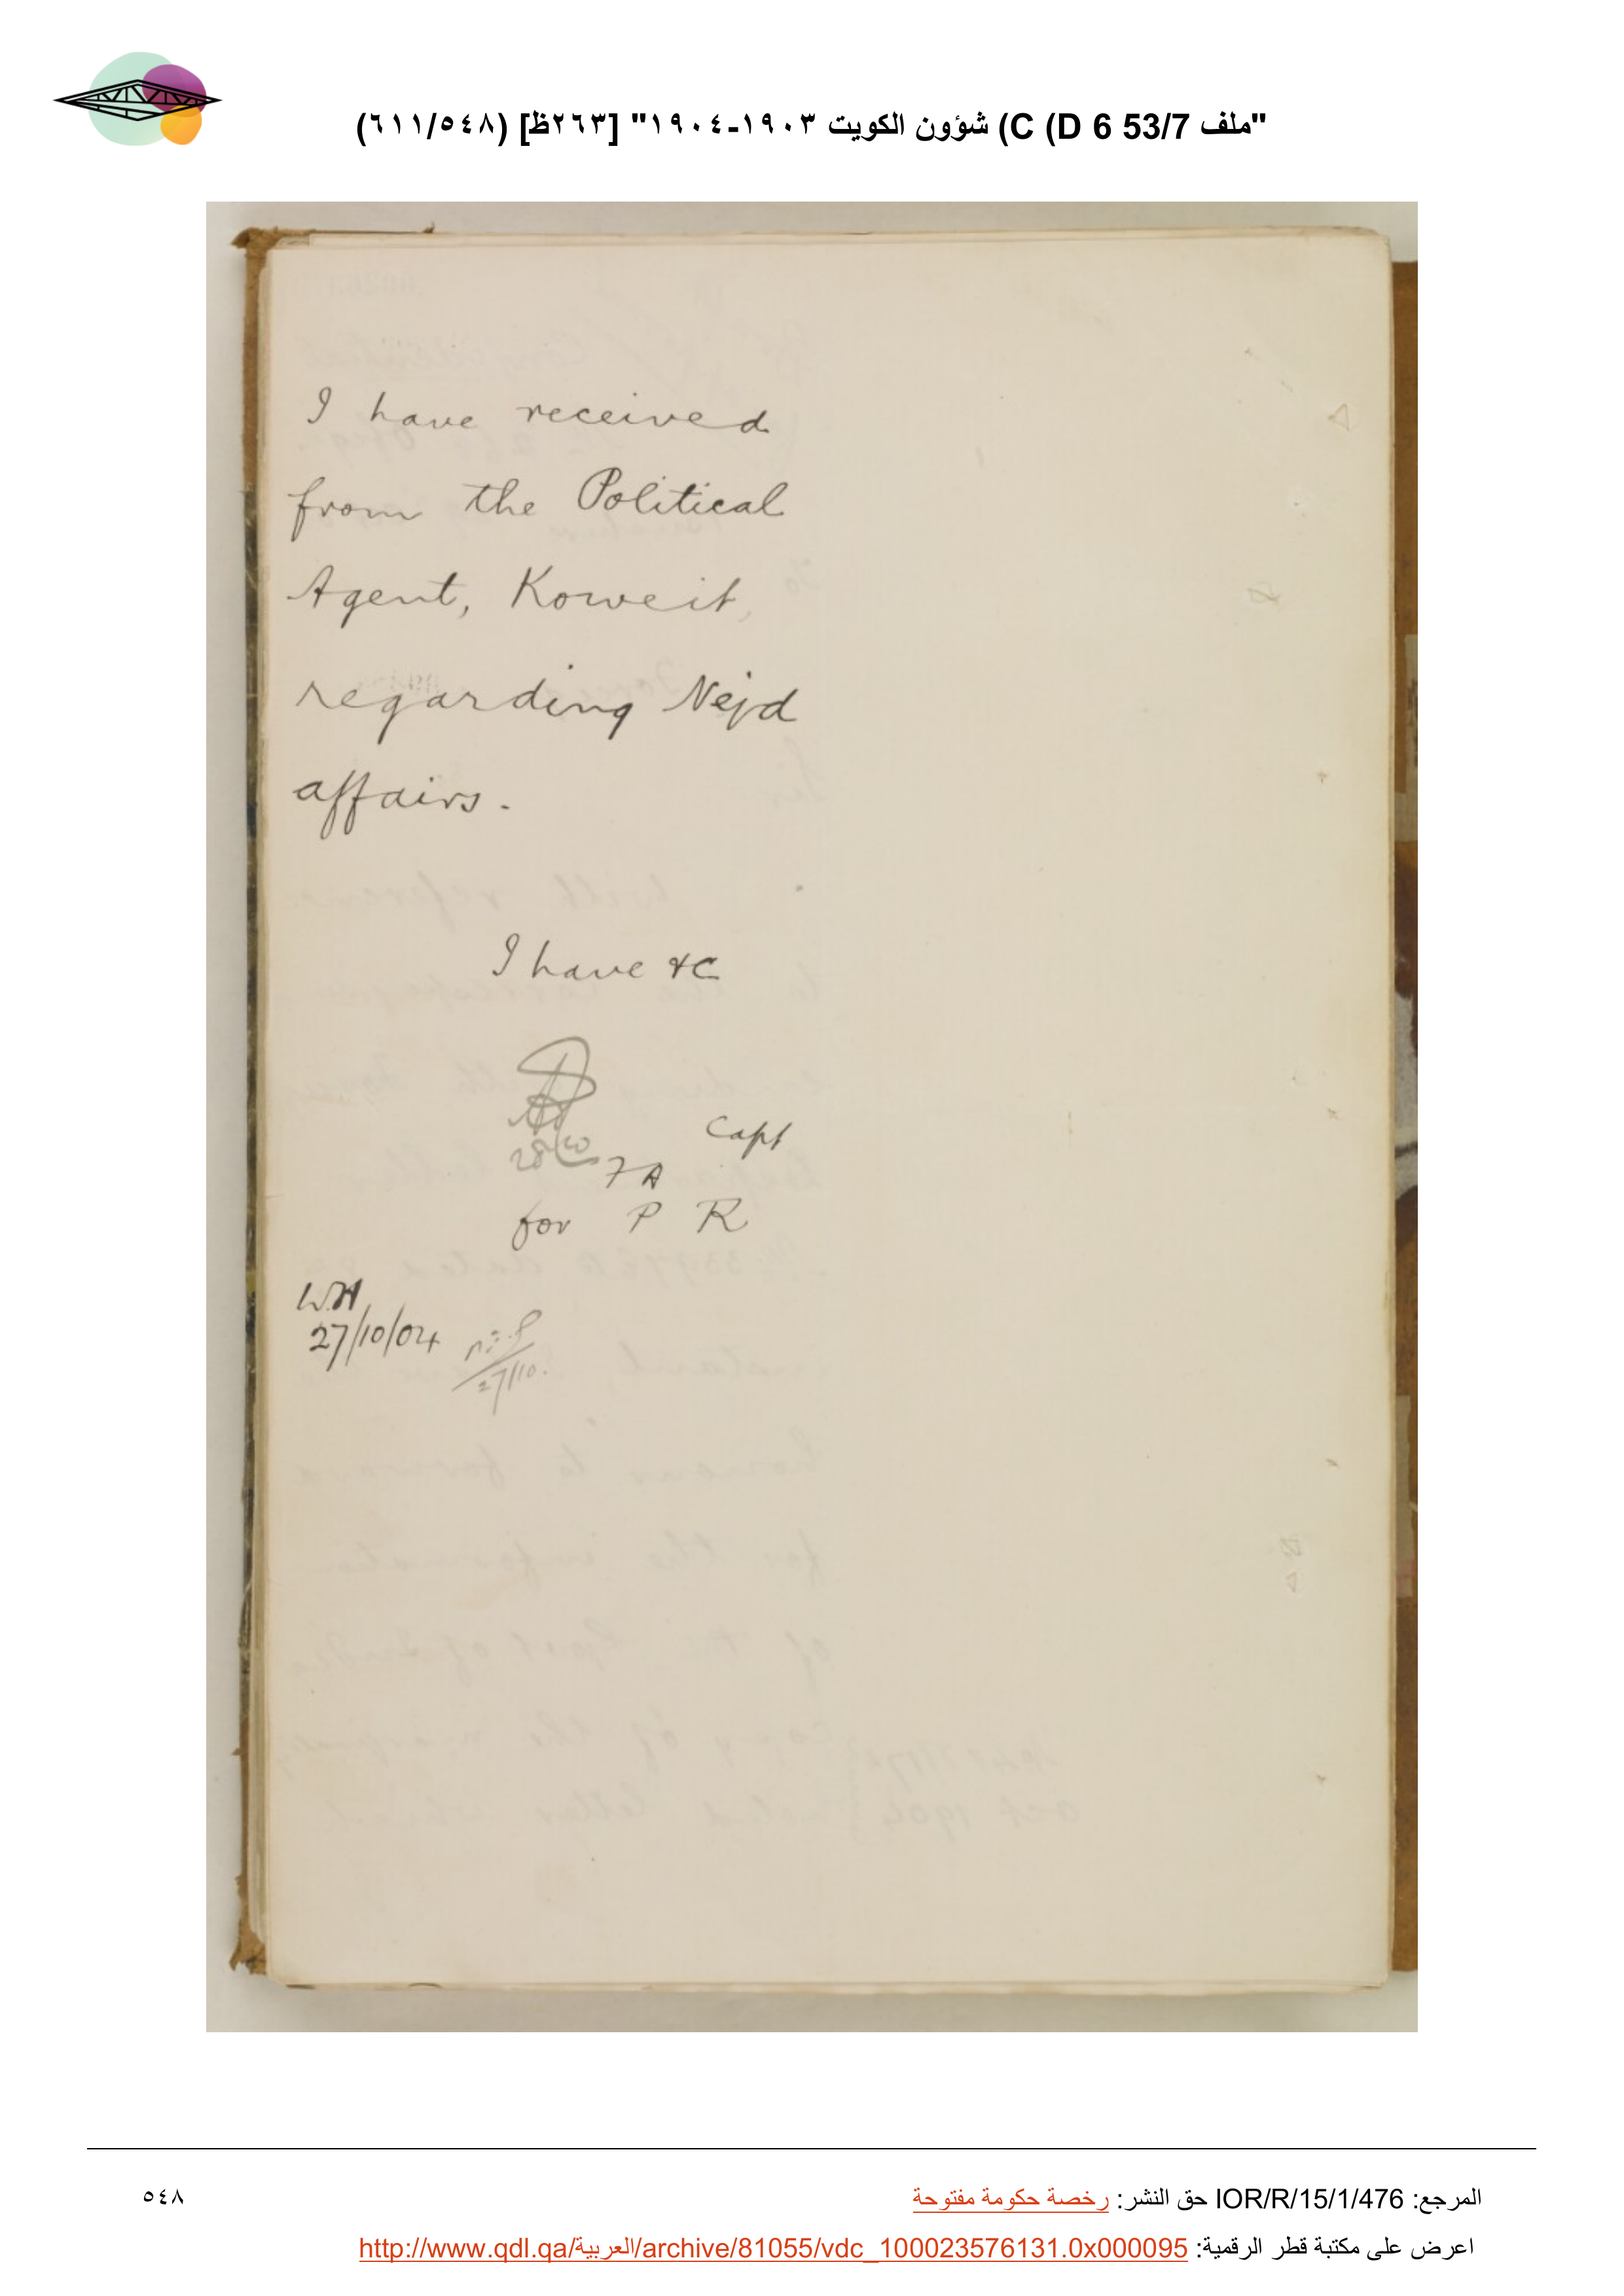 "ملف 53/7 C (D 6) شؤون الكويت ١٩٠٣-١٩٠٤" [٢٦٣ظ] (٥٤٨/٦١١)
I have received
from the Political
Agent, Koweit,
regarding Nejd
affairs.
I have &c
28/10
Capt
FA
for P R
W.H
27/10/04
27/10.
المرجع: IOR/R/15/1/476 حق النشر: رخصة حكومة مفتوحة
٥٤٨
اعرض على مكتبة قطر الرقمية: http://www.qdl.qa/العربية/archive/81055/vdc_100023576131.0x000095